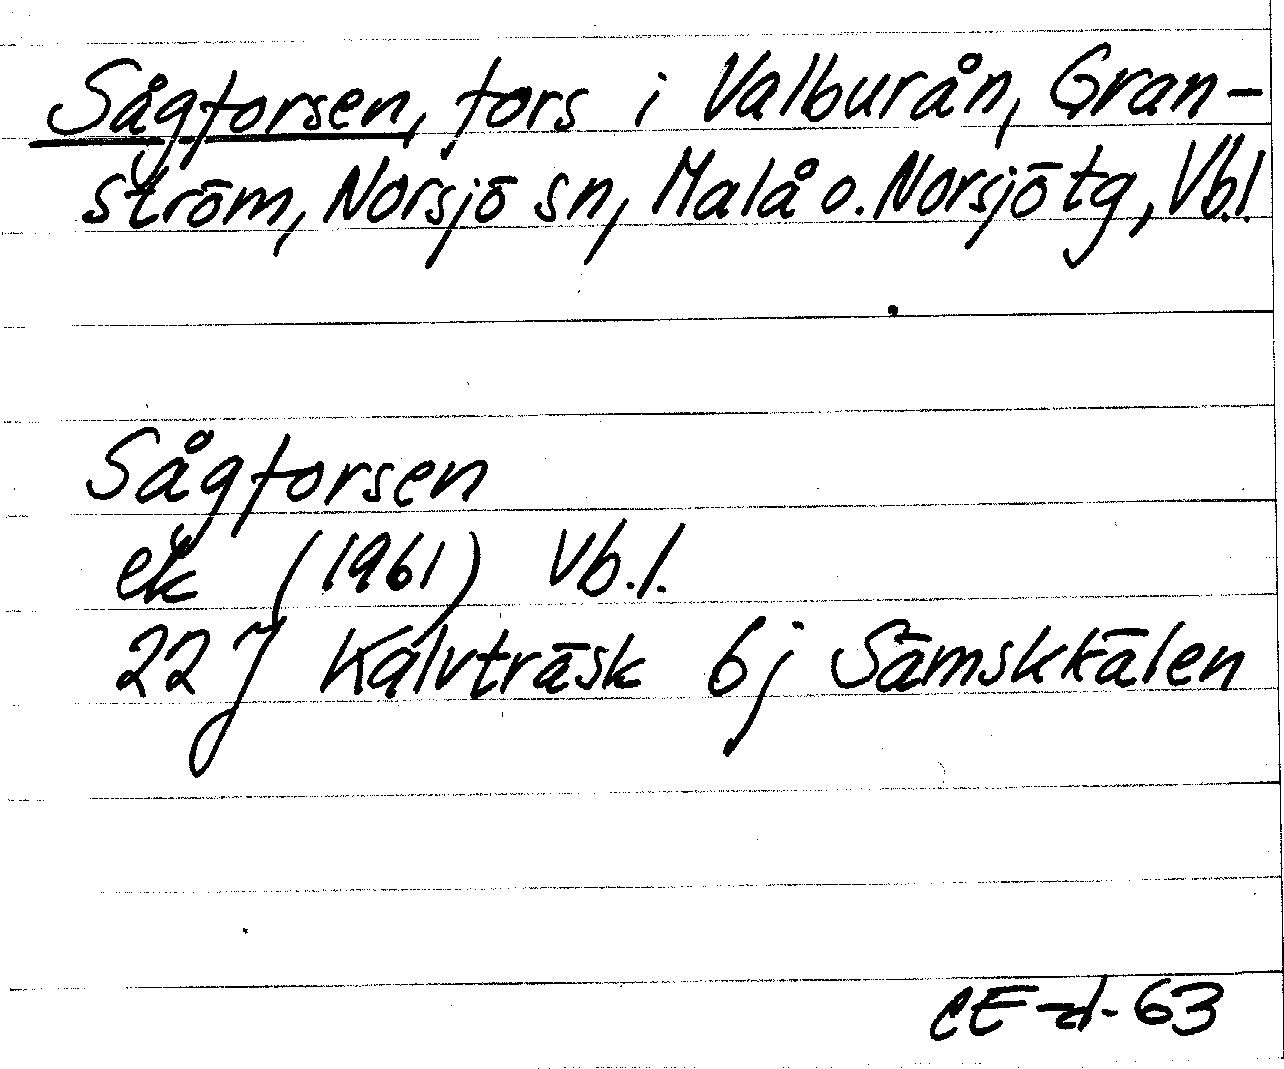 Sågforsen, fors i Valburån, Gran-
ström, Norsjö sn, Malå o. Norsjö tg, Vb.l.
Sågforsen
ek (1961) Vb.l.
22 J Kalvträsk 6j Sämskkälen
CE-d-63